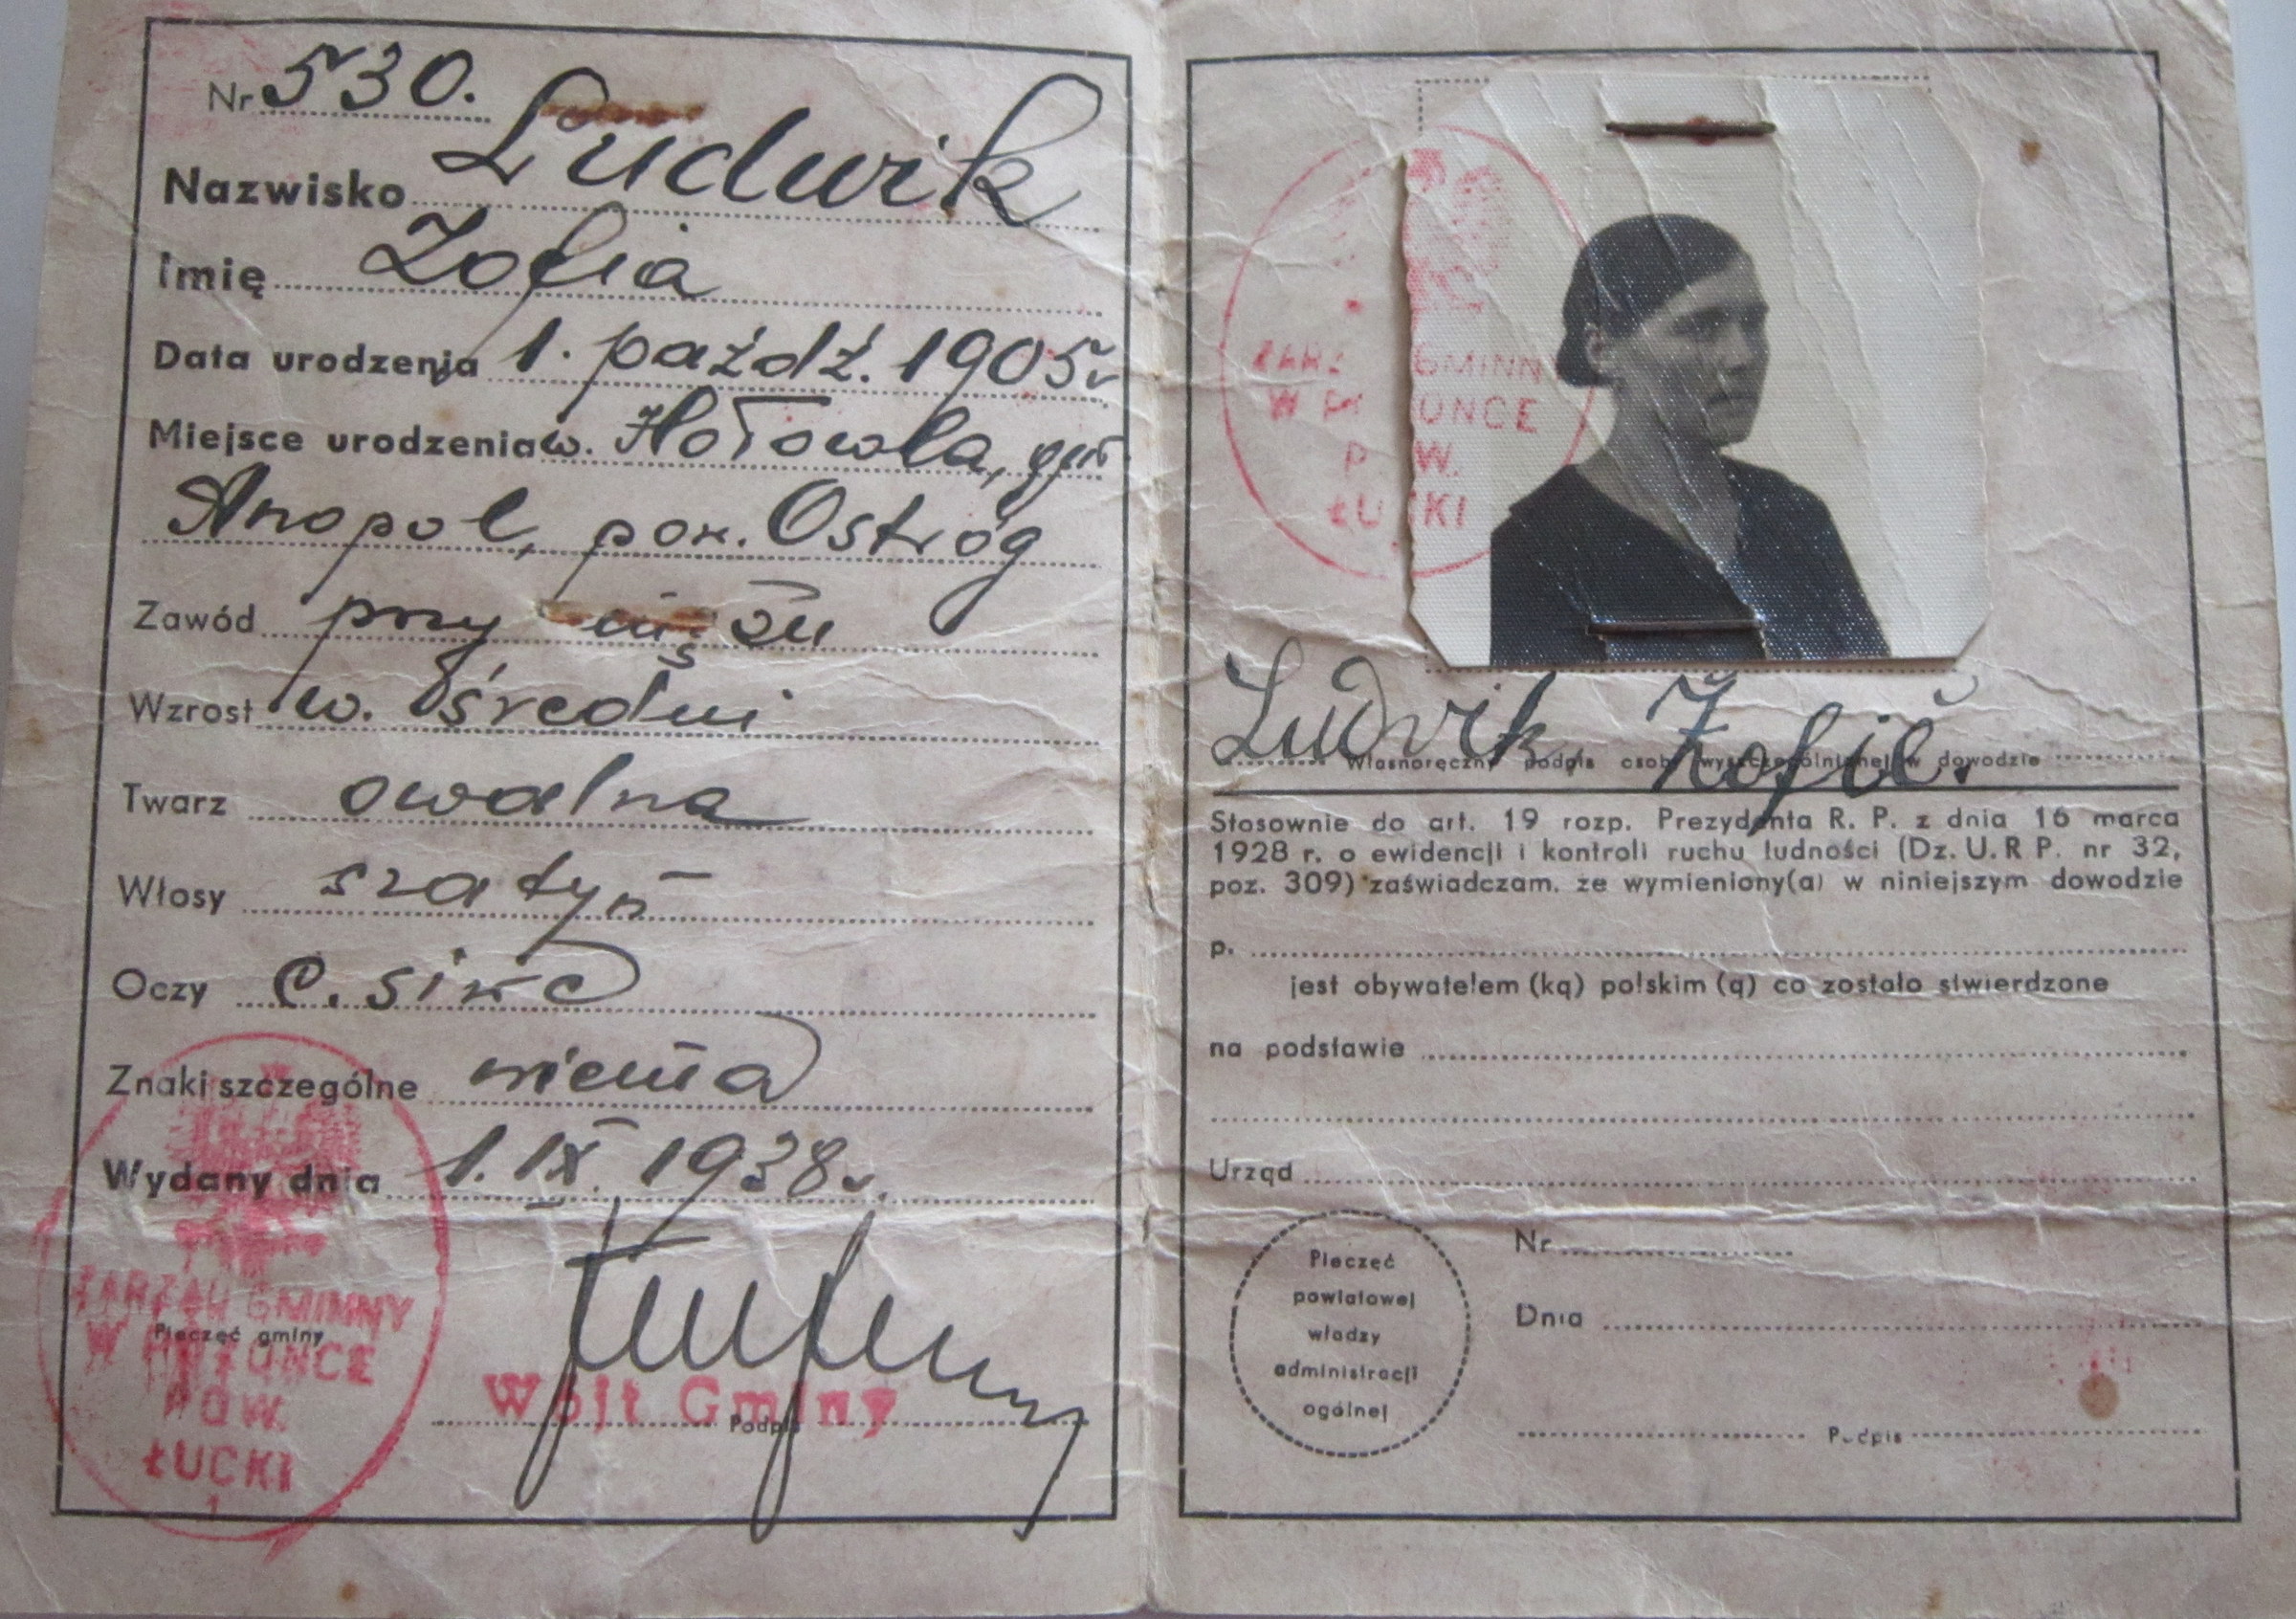 Nr 530.
Nazwisko Ludwik
Imię Zofia
Data urodzenia 1. paźdź. 1905 r
Miejsce urodzenia w. Hołowla, gm.
Anopol, pow. Ostróg
Zawód przy mężu
Wzrost w. średni
Twarz owalna
Włosy szatyn
Oczy c. siwe
Znaki szczególne niema
Wydany dnia 1. IX. 1938 r.
ZARZĄD GMINNY
Pieczęć gminy
POW.
ŁUCKI
1
Wójt Gminy
Podpis
ZARZ GMINN
W UNCE
P W.
ŁUCKI
Ludvik Zofie.
Własnoręczny podpis osoby wyszczególnionej w dowodzie
Stosownie do art. 19 rozp. Prezydenta R. P. z dnia 16 marca
1928 r. o ewidencji i kontroli ruchu ludności (Dz. U. R P. nr 32,
poz. 309) zaświadczam. że wymieniony(a) w niniejszym dowodzie
p.
jest obywatelem (ką) polskim (ą) co zostało stwierdzone
na podstawie
Urząd
Pieczęć
powiatowej
władzy
administracji
ogólnej
Nr
Dnia
Podpis